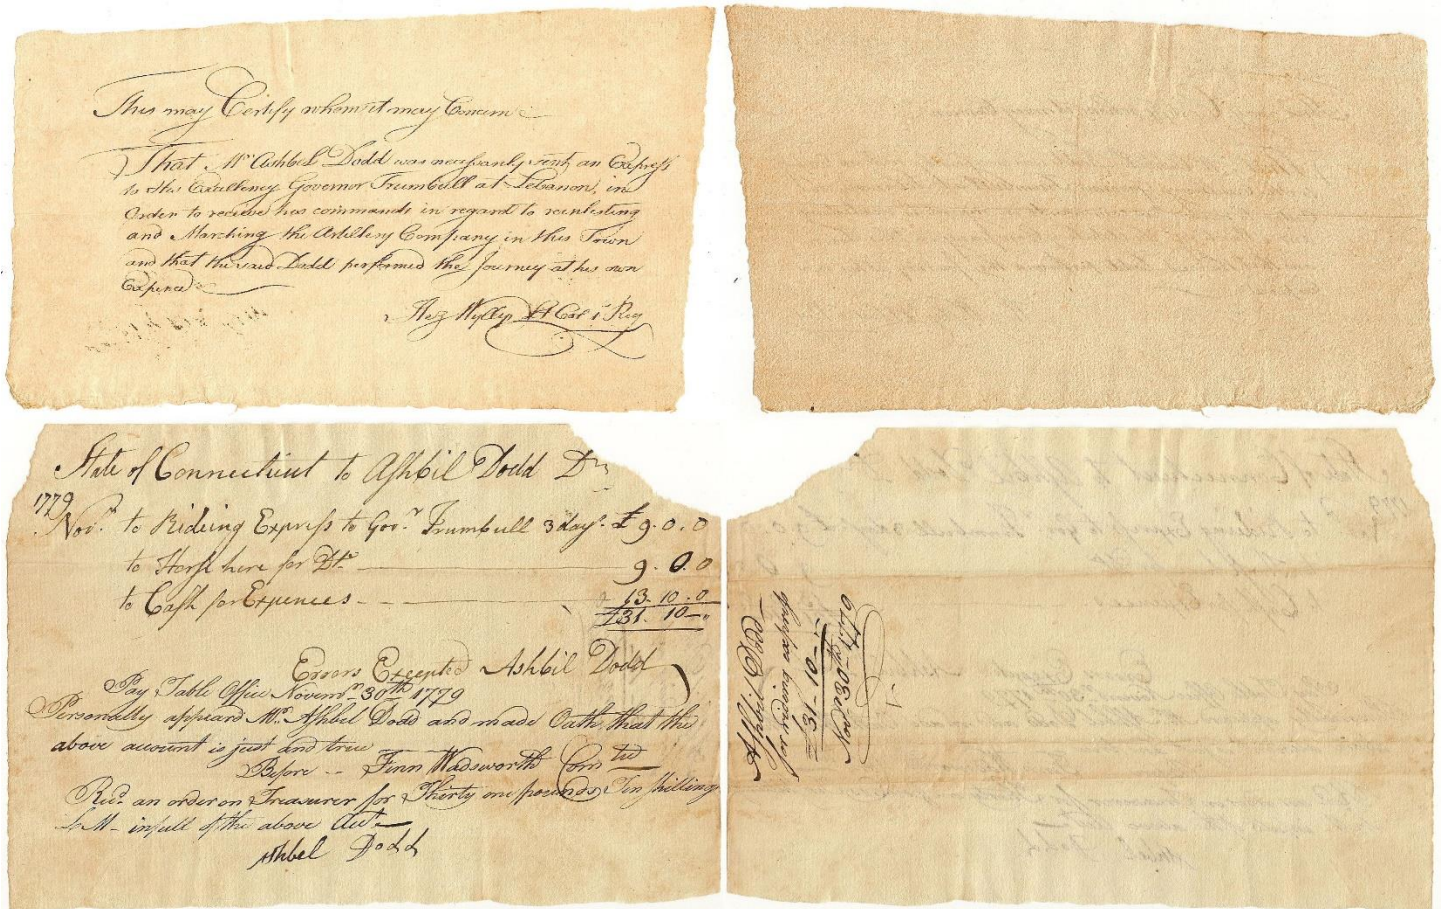 This may Certify whom it may Concern
That Mr Ashbel Dodd was necessarily sent an Express
to His Excellency Governor Trumbull at Lebanon, in
Order to recieve his commands in regard to reinlisting
and Marching the Artillery Company in this Town
and that the said Dodd performed the Journey at his own
Expence
Hez Wyllys Lt Col 1st Reg
State of Connecticut to Ashbil Dodd Dr
1779
Novr to Rideing Express to Govr Trumbull 3 days £ 9.0.0
to Horse hire for Do 9.0.0
to Cash for Expences 13.10.0
£31.10-
Erors Excepted Ashbil Dodd
Pay Table Office Novemr 30th 1779
Personally appeard Mr Ashbel Dodd and made Oath, that the
above account is just and true
Before Finn Wadsworth Comtee
Recd an order on Treasurer for Thirty one pounds Ten shillings
L M - in full of the above Acct
Ashbel Dodd
Ashbel Dodd
for riding express
£31.10-
Novr 30th 1779